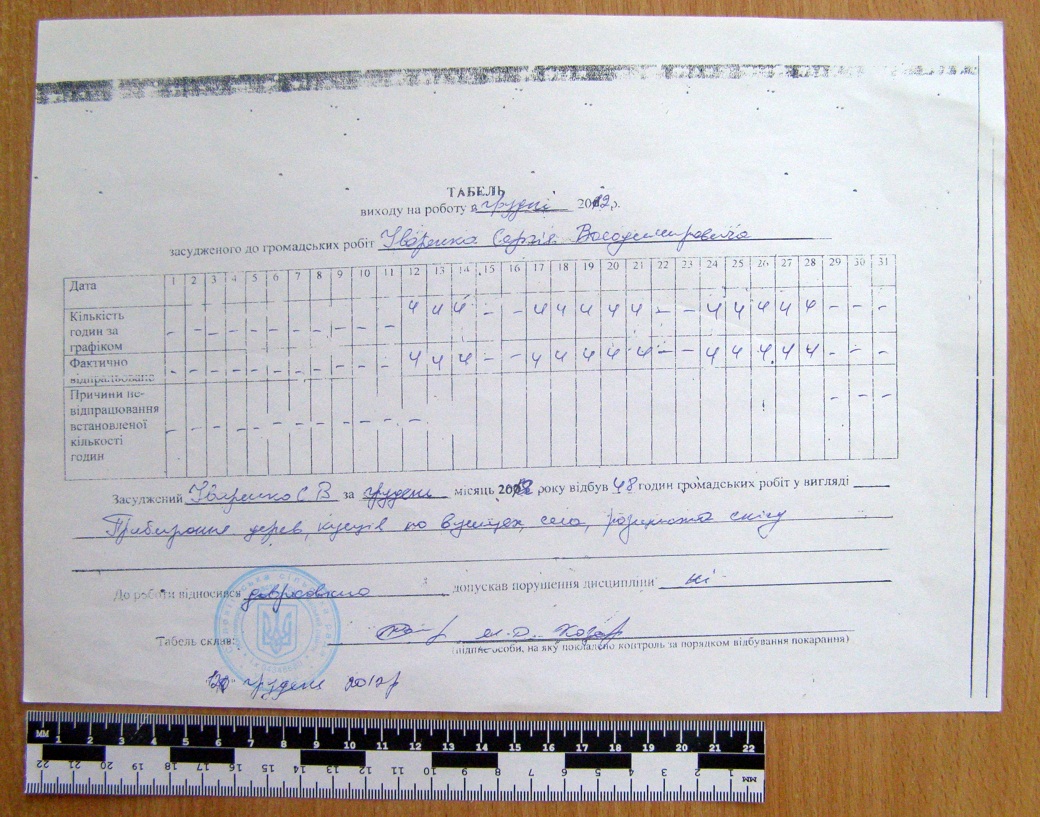 ТАБЕЛЬ
виходу на роботу в грудні 2012р.
засудженого до громадських робіт Сергія Володимировича
Дата 1 2 3 4 5 6 7 8 9 10 11 12 13 14 15 16 17 18 19 20 21 22 23 24 25 26 27 28 29 30 31
Кількість
годин за
графіком - - - - - - - - - - - 4 4 4 - - 4 4 4 4 4 - - 4 4 4 4 4 - - -
Фактично
відпрацьовано - - - - - - - - - - - 4 4 4 - - 4 4 4 4 4 - - 4 4 4 4 4 - - -
Причини не-
відпрацювання
встановленої
кількості
годин - - - - - - - - - - - - - - -
Засуджений С В за грудень місяць 2012 року відбув 48 годин громадських робіт у вигляді
дерев, кущів по вулицях села, розчистка снігу
До роботи відносився добросовісно допускав порушення дисципліни ні
Табель склав: М.Д.
(підпис особи, на яку покладено контроль за порядком відбування покарання)
грудень 2012р
мм 1 2 3 4 5 6 7 8 9 10 11 12 13 14 15 16 17 18 19 20 21 22
22 21 20 19 18 17 16 15 14 13 12 11 10 9 8 7 6 5 4 3 2 1 мм